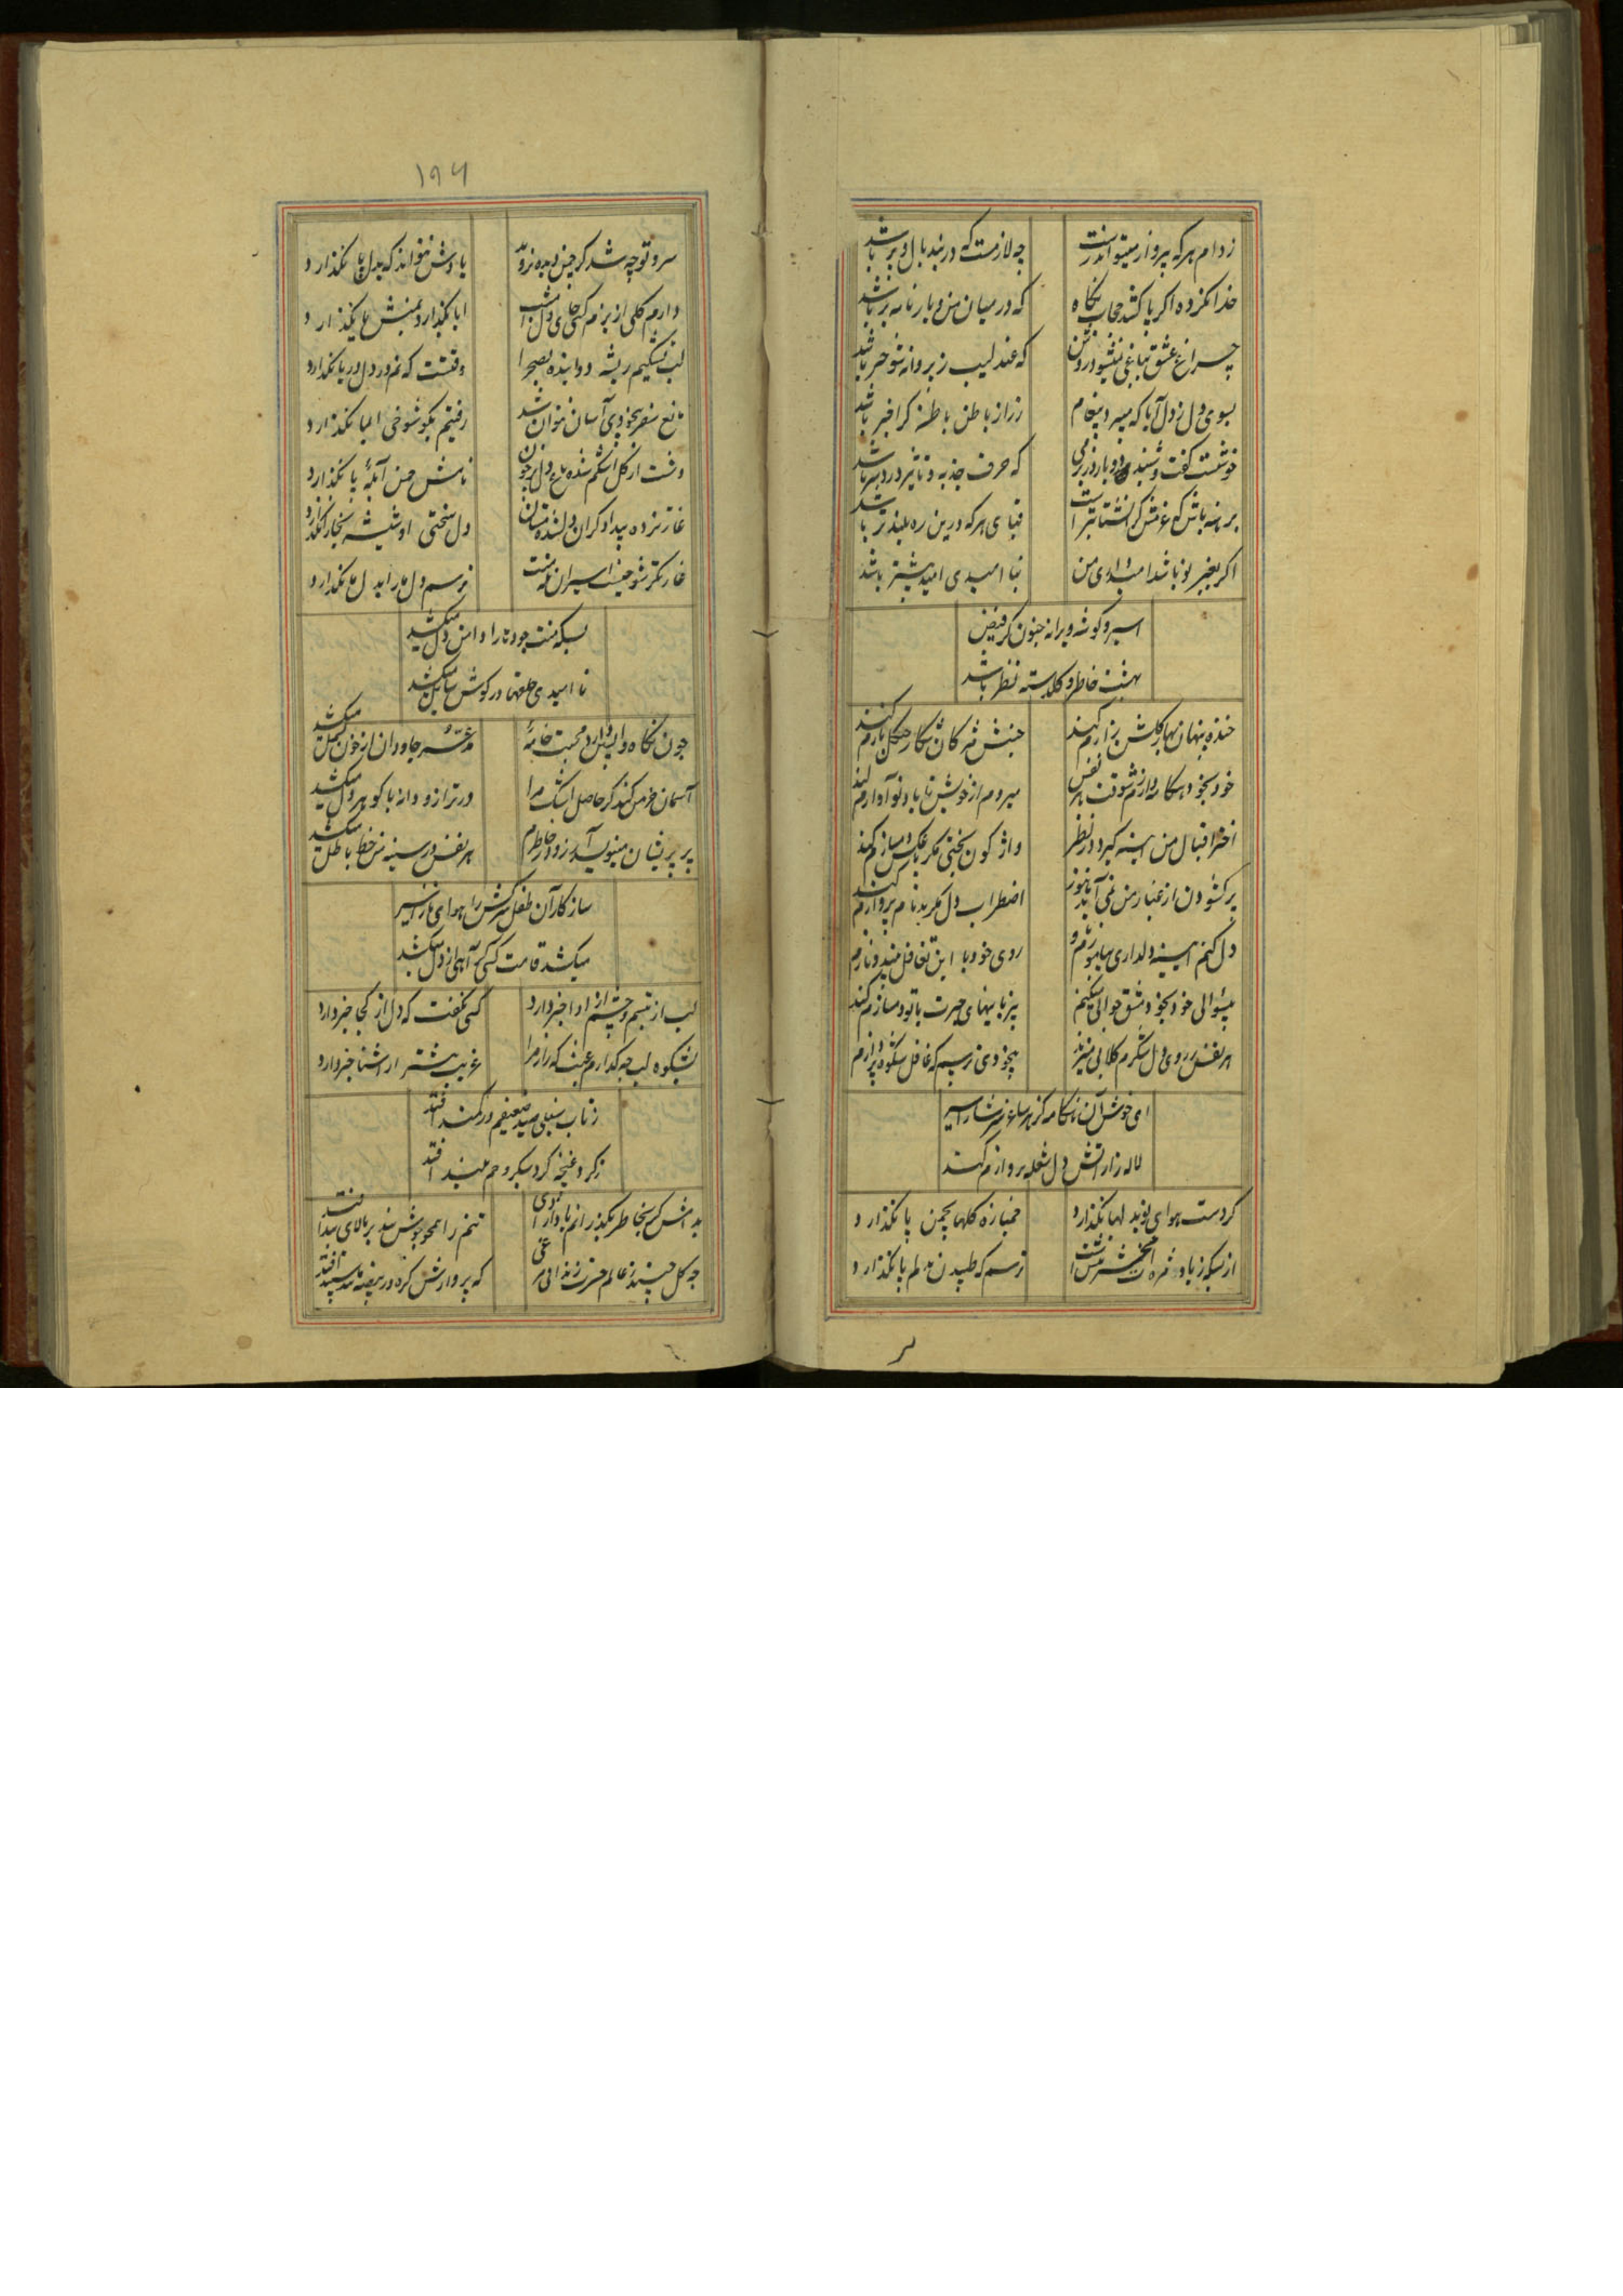 ز دام هر که بپرواز میتواند رست
چه لازمست که در بند بال و پر باشد
خدا نکرده اگر پا کشد حجاب نگاه
که در میان من و یار نامه بر باشد
چراغ عشق بباغی نمیشود روشن
که عندلیب ز پروانه شوختر باشد
بسوی دل ز دل آیا که میبرد پیغام
ز راز باطن باطن کرا خبر باشد
خوشست گفت و شنید
که حرف جذبه و تاثیر دردسر باشد
برهنه باش که
قبای هر که درین ره بلندتر باشد
اگر بغیر تو باشد امیدواری من
بنا امیدی امید بیشتر باشد
اسیر و گوشه ویرانه جنون کز فیض
بهشت خاطر و گلدسته نظر باشد
خنده پنهان بهار گلشن رازم کند
جنبش مژگان شکار چنگل بازم کند
میروم از خویش تا یاد تو آوازم کند
اختر اقبال من آیینه گیرد در نظر
واژگون بختی مگر با عکس دمسازم کند
پر گشودن از غبار من نمی آید هنوز
اضطراب دل مگر بدنام پروازم کند
دل کنم آیینه دلداری بیاموزم
روی خود با این تغافل بیند و نازم
بیسوالی خود بخود مشق جوابی میکنم
بیزبانیهای حیرت با تو دمسازم کند
هر نفس بر روی دل شکرم گلابی میزند
بیخودی ترسم که غافل شکوه پردازم
ای خوش آن هنگامه کز هر ساغر سرشار اسیر
لاله زار آتش دل شعله پروازم کند
گردست هوای تو بدلها نگذارد
خمیازه گلها بچمن پا نگذارد
از بسکه ز یاد مژه ات
ترسم که طپیدن بدلم پا نگذارد
۱۹۶
سرو تو چه شد گر چمن دیده نرویید
یادش نتواند که بدل پا نگذارد
دارم گلی از بزم کسی جای دل امشب
اما نگذارد بمنش یا نگذارد
لب تشنگیم ریشه دوانیده بصحرا
وقتست که نم در دل دریا نگذارد
مانع سفر بیخودی آسان نتوان شد
رفتیم بگو شوخی ایما نگذارد
دشت از گل اشکم شده باغ دل پر خون
نامش چمن آبله پا نگذارد
غارتزده بیدادگران
دل سختی او شیشه بخارا نگذارد
غارتگر شو
ترسم دل ما را بدل ما نگذارد
بسکه منت جود ما را دامن دل میکشد
نا امیدی حلقها در گوش سایل میکشد
چون نگاه واپسین دارد محبت خانه
مد عمر جاودان از خون بسمل میکشد
آسمان خرمن کند گر حاصل اشک مرا
در ترازو دانه با گوهر دل میکشد
پر پریشان مینویسد آرزو در خاطرم
هر نفس در سینه من خط باطل میکشد
ساز کار آن طفل سرکش را هوای ناز اسیر
میکشد قامت کسی کز آهی از دل میکشد
لب از تبسم و چشم از ادا خبر دارد
کسی نگفت که دل از کجا خبر دارد
بشکوه لب چه گذارم عبث که راز مرا
غریب بیشتر از آشنا خبر دارد
ز تاب سنبلی صید ضعیفم در کمند افتد
ز گرد غنچه گرد سبکروحم بلند افتد
بدامش گر بخاطر بگذرانم
تنم را همچو بویش
چه گل چیند ز عالم حسرت زندانی مرغی
که پروازش گره در بیضه مانند سپند افتد